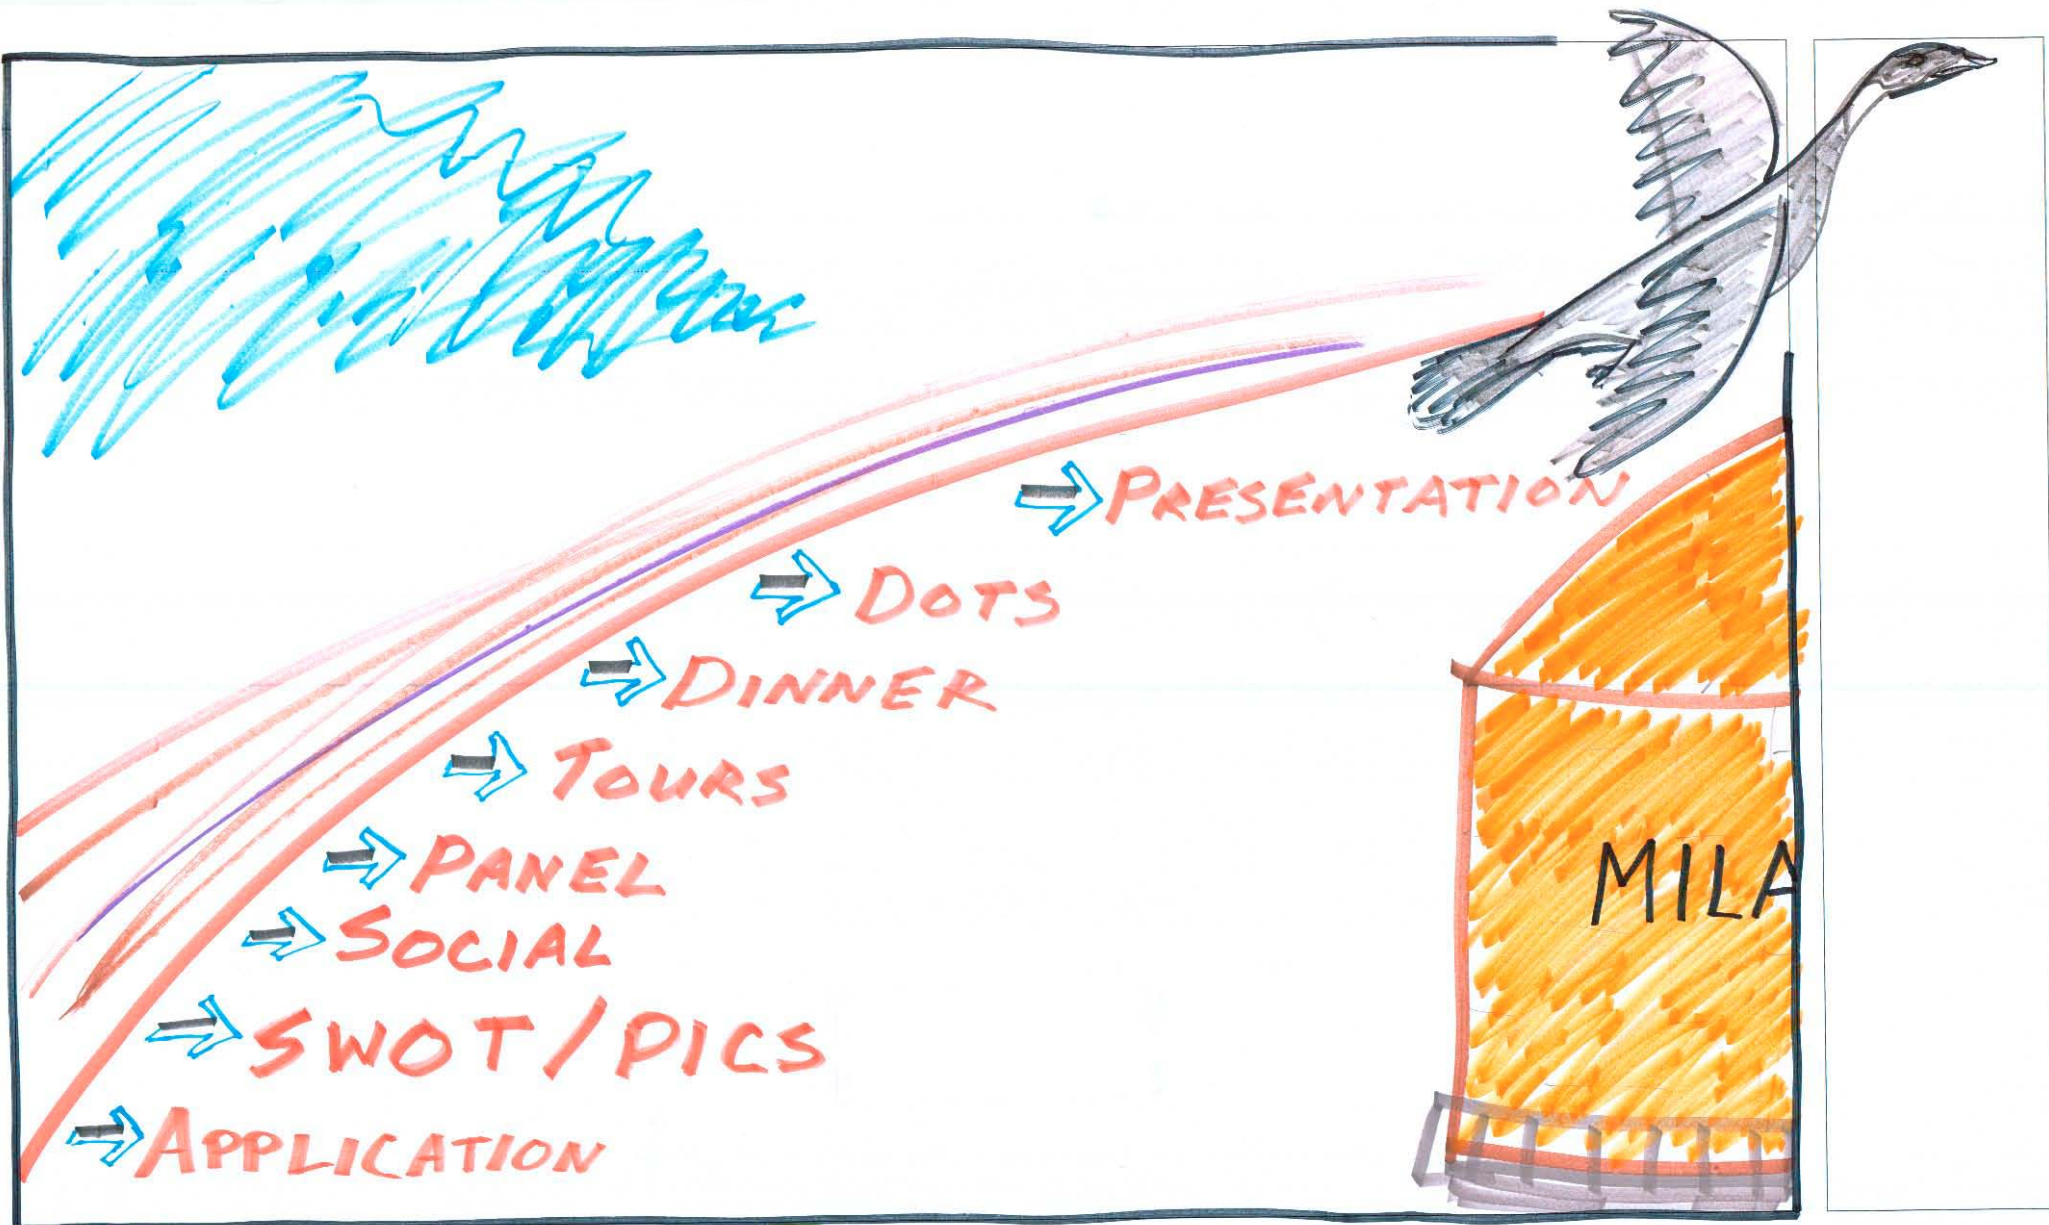 PRESENTATION
DOTS
DINNER
TOURS
PANEL
SOCIAL
SWOT/PICS
APPLICATION
MILA